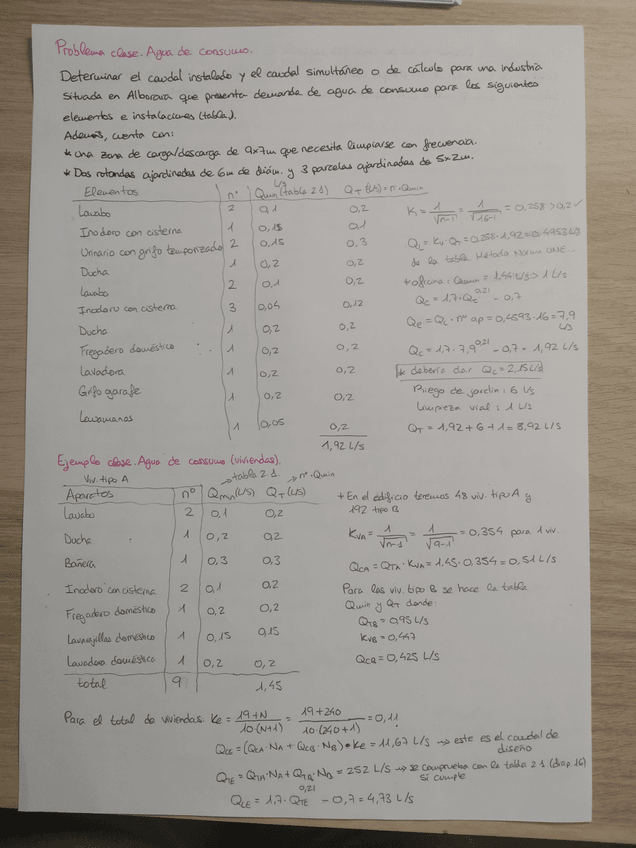 Problema clase. Agua de consumo.
Determinar el caudal instalado y el caudal simultáneo o de cálculo para una industria
situada en Alboraya que presenta demanda de agua de consumo para los siguientes
elementos e instalaciones (tabla).
Además, cuenta con:
* una zona de carga/descarga de 9x7m que necesita limpiarse con frecuencia.
* Dos rotondas ajardinadas de 6m de diám. y 3 parcelas ajardinadas de 5x2m.
Elementos nº Qmin (tabla 2.1) L/s QT (L/s) = n·Qmin
Lavabo 2 0,1 0,2
Inodoro con cisterna 1 0,15 0,1
Urinario con grifo temporizado 2 0,15 0,3
Ducha 1 0,2 0,2
Lavabo 2 0,1 0,2
Inodoro con cisterna 3 0,04 0,12
Ducha 1 0,2 0,2
Fregadero doméstico 1 0,2 0,2
Lavadora 1 0,2 0,2
Grifo garaje 1 0,2 0,2
Lavamanos 1 0,05 0,2
1,92 L/s
K = 1/√n-1 = 1/√16-1 = 0,258 > 0,2 ✓
QC = Kv · QT = 0,258 · 1,92 = 0,4953 L/s
de la tabla Método Norma UNE...
+ oficina: Qmin = 1,44 L/s > 1 L/s
QC = 1,7 · QE^0,21 - 0,7
QE = QC · nº ap = 0,4593 · 16 = 7,9 L/s
QC = 1,7 · 7,9^0,21 - 0,7 = 1,92 L/s
* debería dar QC = 2,15 L/s
Riego de jardín: 6 L/s
Limpieza vial: 1 L/s
QT = 1,92 + 6 + 1 = 8,92 L/s
Ejemplo clase. Agua de consumo (viviendas).
Viv. tipo A → tabla 2.1 → nº · Qmin
Aparatos nº Qmin (L/s) QT (L/s)
Lavabo 2 0,1 0,2
Ducha 1 0,2 0,2
Bañera 1 0,3 0,3
Inodoro con cisterna 2 0,1 0,2
Fregadero doméstico 1 0,2 0,2
Lavavajillas doméstico 1 0,15 0,15
Lavadora doméstico 1 0,2 0,2
total 9 1,45
+ En el edificio tenemos 48 viv. tipo A y
192 tipo B
KVA = 1/√n-1 = 1/√9-1 = 0,354 para 1 viv.
QCA = QTA · KVA = 1,45 · 0,354 = 0,51 L/s
Para las viv. tipo B se hace la tabla
Qmin y QT donde:
QTB = 0,95 L/s
KVB = 0,447
QCB = 0,425 L/s
Para el total de viviendas: Ke = 19+N/10·(N+1) = 19+240/10·(240+1) = 0,11
QCE = (QCA · NA + QCB · NB) · Ke = 11,67 L/s → este es el caudal de
diseño
QTE = QTA · NA + QTB · NB = 252 L/s → se comprueba con la tabla 2.1 (diap. 16)
si cumple
QCE = 1,7 · QTE^0,21 - 0,7 = 4,73 L/s